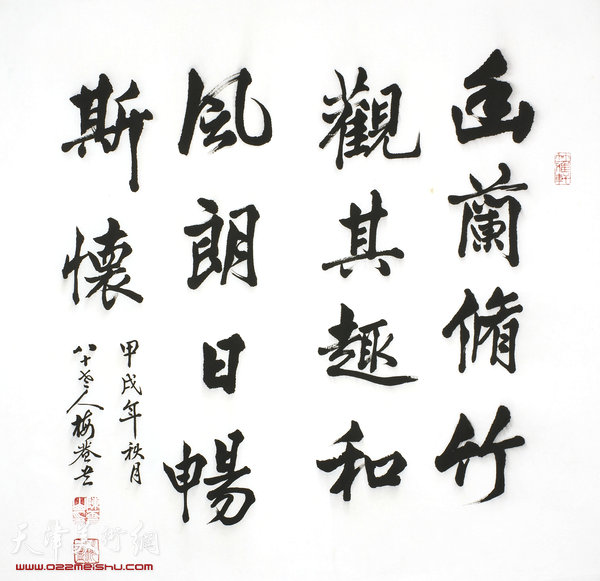 幽蘭脩竹
觀其趣和
風朗日暢
斯懷
甲戌年秋月
八十老人梅
天津美術網
www.022meishu.com